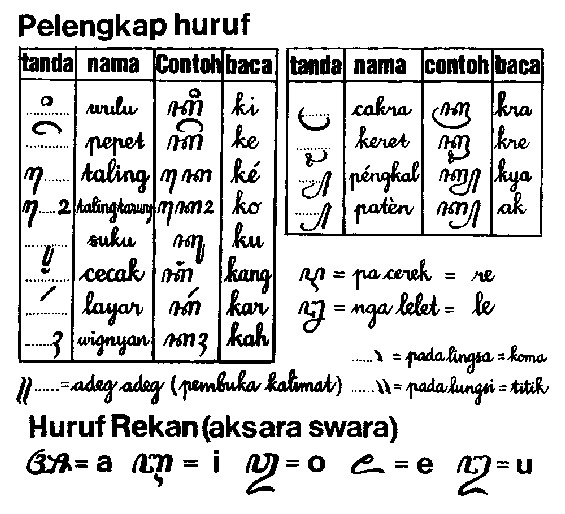 Pelengkap huruf
tanda nama Contoh baca
wulu ꦏꦶ ki
pepet ꦏꦼ ke
taling ꦏꦺ ké
taling tarung ꦏꦺꦴ ko
suku ꦏꦸ ku
cecak ꦏꦁ kang
layar ꦏꦂ kar
wignyan ꦏꦃ kah
tanda nama contoh baca
cakra ꦏꦿ kra
keret ꦏꦽ kre
péngkal ꦏꦾ kya
patèn ꦏ꧀ ak
ꦉ = pa cerek = re
ꦊ = nga lelet = le
...... = pada lingsa = koma
...... = adeg adeg (pembuka kalimat)
...... = pada lungsi = titik
Huruf Rekan (aksara swara)
ꦄ = a ꦆ = i ꦎ = o ꦌ = e ꦈ = u